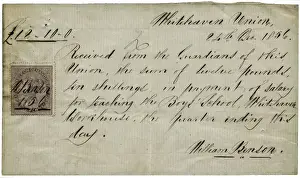 Whitehaven Union,
£12-10-0. 24th Dec 1856.
Received from the Guardians of this
Union, the sum of twelve pounds,
ten shillings in payment of salary
for teaching the Boys' School, Whitehaven
Workhouse, the quarter ending this
day.
William Benson.